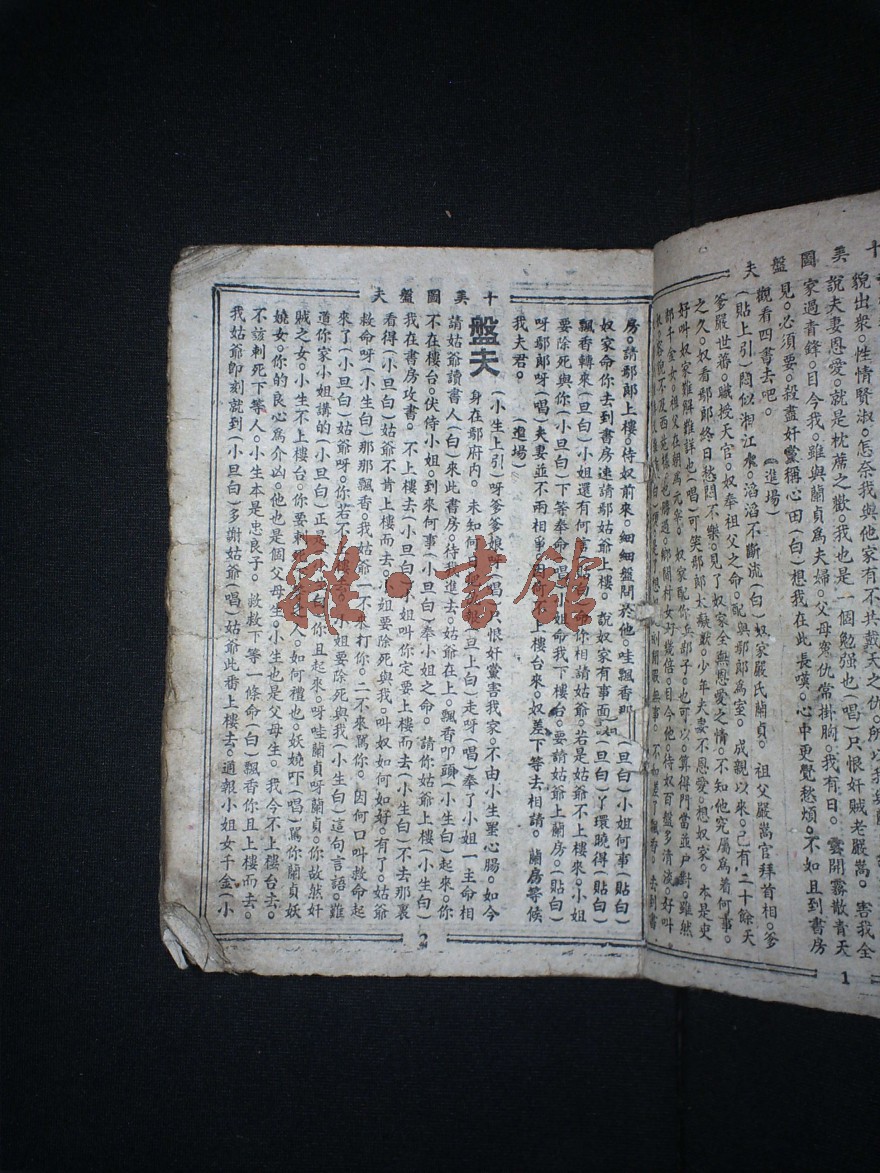 十美圖盤夫
貌出衆。性情賢淑。怎奈我與他有不共戴天之仇。所以我
說夫妻恩愛。就是枕蓆之歡。我也是一個勉強也(唱)只恨奸賊老嚴嵩。害我全
家過青鋒。目今我。雖與蘭貞爲夫婦。父母寃仇常掛胸。我有日。雲開霧散青天
見。必須要。殺盡奸黨稱心田(白)想我在此長嘆。心中更覺愁煩。不如且到書房
觀看四書去吧。(進場)
(貼上引)悶似湘江水。滔滔不斷流(白)奴家嚴氏蘭貞。祖父嚴嵩官拜首相。爹
爹嚴世蕃。職授天官。奴奉祖父之命。配與鄢郎爲室。成親以來。已有二十餘天
之久。奴看鄢郎終日愁悶不樂。見了奴家全無恩愛之情。不知他究屬爲着何事。
好叫奴家難解難詳也(唱)可笑鄢郎太癡獃。少年夫妻不恩愛。想奴家。本是史
1
十美圖盤夫
房。請鄢郎上樓。待奴前來。細細盤問於他。哇飄香那(旦白)小姐何事(貼白)
奴家命你去到書房速請鄢姑爺上樓。說奴家有事面(旦白)丫環曉得(貼白)
飄香轉來(旦白)小姐還有何
你相請姑爺。若是姑爺不上樓來。小姐
要除死與你(旦白)下等奉命
姐命我下樓台。要請姑爺上蘭房(貼白)
呀鄢郎呀(唱)夫妻並不兩相爭。因何
上樓台來。奴差下等去相請。蘭房等候
我夫君。(進場)
盤夫
(小生上引)呀爹爹娘呀(唱)只恨奸黨害我家。不由小生墨心腸。如今
身在鄢府内。未知何
旦上白)走呀(唱)奉了小姐一主命相
請姑爺讀書人(白)來此書房。待我進去。姑爺在上。飄香叩頭(小生白)起來。你
不在樓台。伏侍小姐到來何事(小旦白)奉小姐之命。請你姑爺上樓(小生白)
我在書房攻書。不上樓去(小旦白)
姐叫你定要上樓而去(小生白)不去那裏
看得(小旦白)姑爺不肯上樓而去。小姐要除死與我。叫奴如何如好。有了。姑爺
救命呀(小生白)那那飄香。我姑爺一不來打你。二不來罵你。因何口叫救命起
來了(小旦白)姑爺呀。你若不
樓
小姐要除死與我(小生白)這句言語。誰
道你家小姐講的(小旦白)正是
你且起來。呀哇蘭貞呀蘭貞。你故然奸
賊之女。小生不上樓台。你要刺
人。如何禮也。妖嬈吓(唱)罵你蘭貞妖
嬈女。你的良心爲介凶。他也是個父母生。小生也是父母生。我今不上樓台去。
不該刺死下等人。小生本是忠良子。救救下等一條命(白)飄香你且上樓而去。
我姑爺卽刻就到(小旦白)多謝姑爺(唱)姑爺此番上樓去。通報小姐女千金(小
2
雜·書館